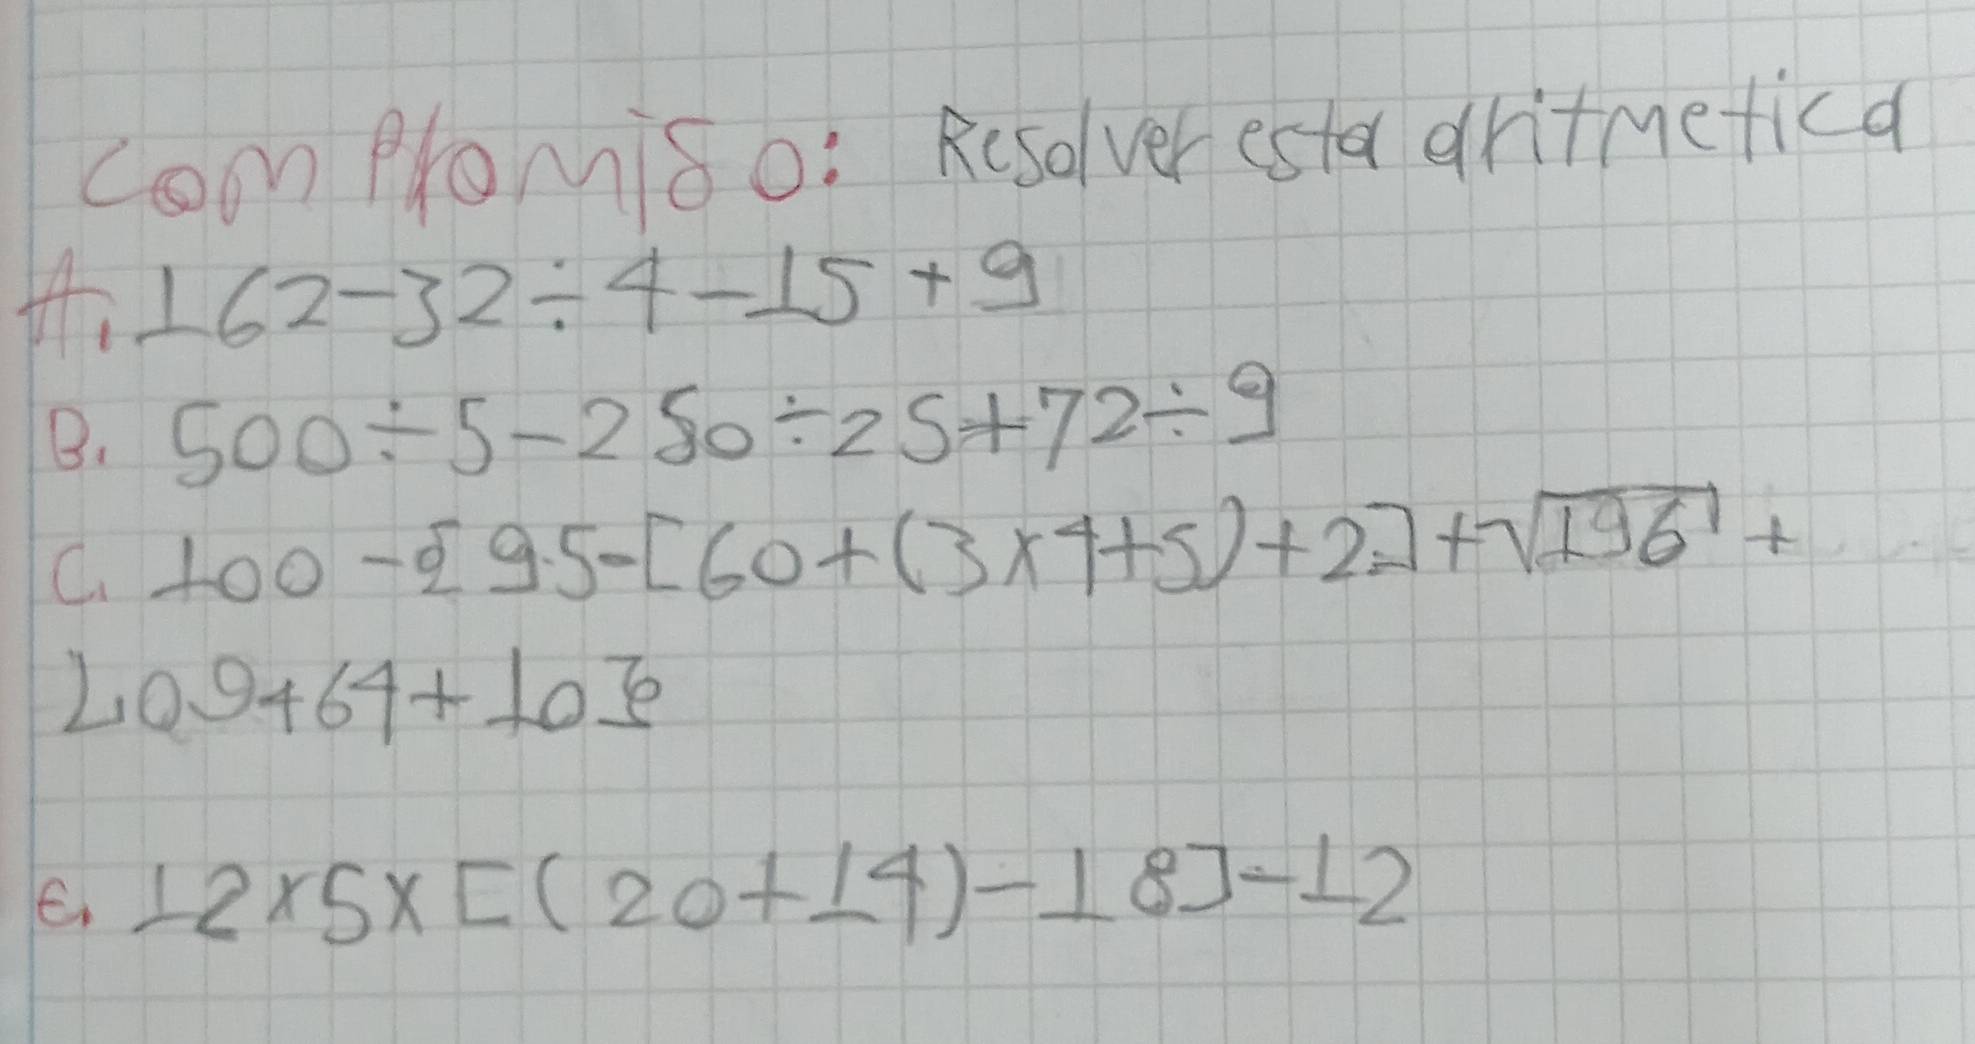 Compromiso: Resolver esta aritmetica
A. 162-32÷4-15+9
B. 500÷5-250÷25+72÷9
C. 100-{9.5-[60+(3x4+5)+2]+√196+
Log+64+10}
E. 12x5x[(20+14)-18]-12